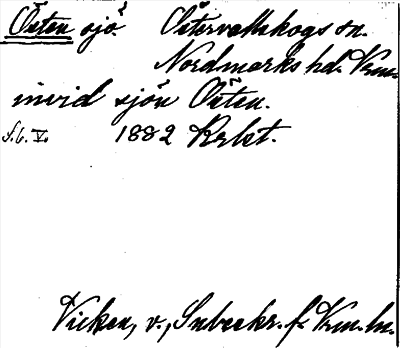 Östen sjö Östervallskogs sn.
Nordmarks hd. Vrm.
invid sjön Östen.
S. 6. V. 1882 Krbet.
Vicken, v., Snbeskr. f. Vrm. ln.